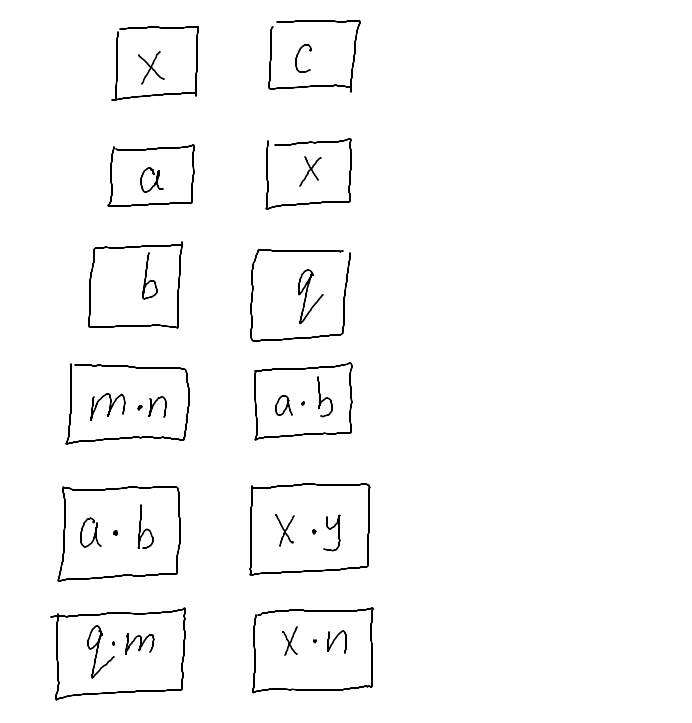 x c
a x
b q
m·n a·b
a·b x·y
q·m x·n